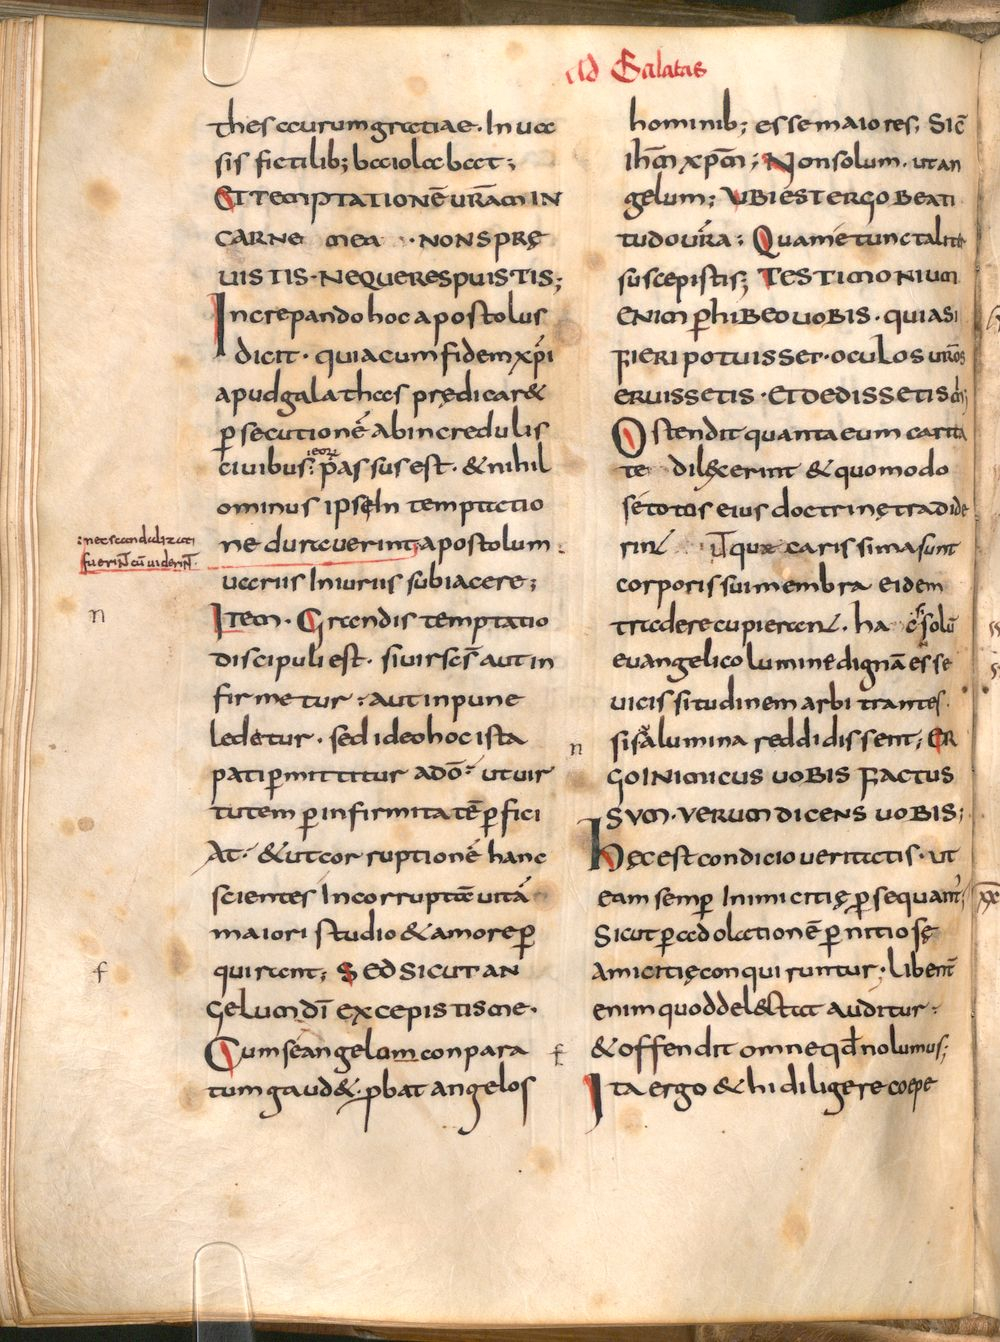 Ad Galatas
thesaurum gratiae · In ua
sis fictilib; baiolabat;
ET TEMPTATIONĒ URĀM IN
CARNE MEA · NON SPRĘ
UISTIS · NEQUE RESPUISTIS;
Increpando hoc apostolus
dicit · quia cum fidem xp̄i
apud galathas prędicar&
p̱secutionē ab incredulis
ciuibus
p̄assus est · & nihil
ominus ipse In temptatio
ne durauerint, apostolum
: nec scandalizati
fuerinт̄ cū uiderinт̄ ·
uariis Iniuriis subiacere;
n
ITEM · Grandis temptatio
discipuli est · si uir sc̄s aut in
firmetur : aut inpune
ledetur · sed ideo hoc ista
pati p̱mittitur a dō : ut uir
tutem p̱ infirmitatē p̱fici
At · & ut corruptionē hanc
scientes Incorruptā uitā
maiori studio & amore p̱
quirant; SED SICUT AN
f
GELUM DĪ EXCEPISTIS ME ·
Cum se angelum conpara
tum gaud& · p̱bat angelos
hominib; esse maiores; SIC̄
ih̄m xp̄m; Non solum · ut an
gelum; UBI EST ERGO BEATI
TUDO UR̄A; Qua me tunc taliter
suscepistis; TESTIMONIUM
ENIM P̱HIBEO UOBIS · QUIA SI
FIERI POTUISSET · OCULOS UR̄OS
ERUISSETIS · ET DEDISSETIS
Ostendit quanta eum carita
te dilęxerint & quomodo
se totos eius doctrinę tradide
rint ut quae carissima sunt
corporis sui membra eidem
tradere cuperent · hac solū
euangelico lumine dignā esse
uicissitudinem arbitrantes ·
n
si sua lumina reddidissent; ER
GO INIMICUS UOBIS FACTUS
SUM · UERUM DICENS UOBIS;
Hęc est condicio ueritatis · ut
eam semp̱ Inimicitię p̱sequant̄;
Sicut p̱ adolationē p̱nitiosę
Amicitię conquiruntur · libent̄
enim quod delectat auditur :
f
& offendit omne qđ nolumus;
Ita ergo & hi diligere coepe